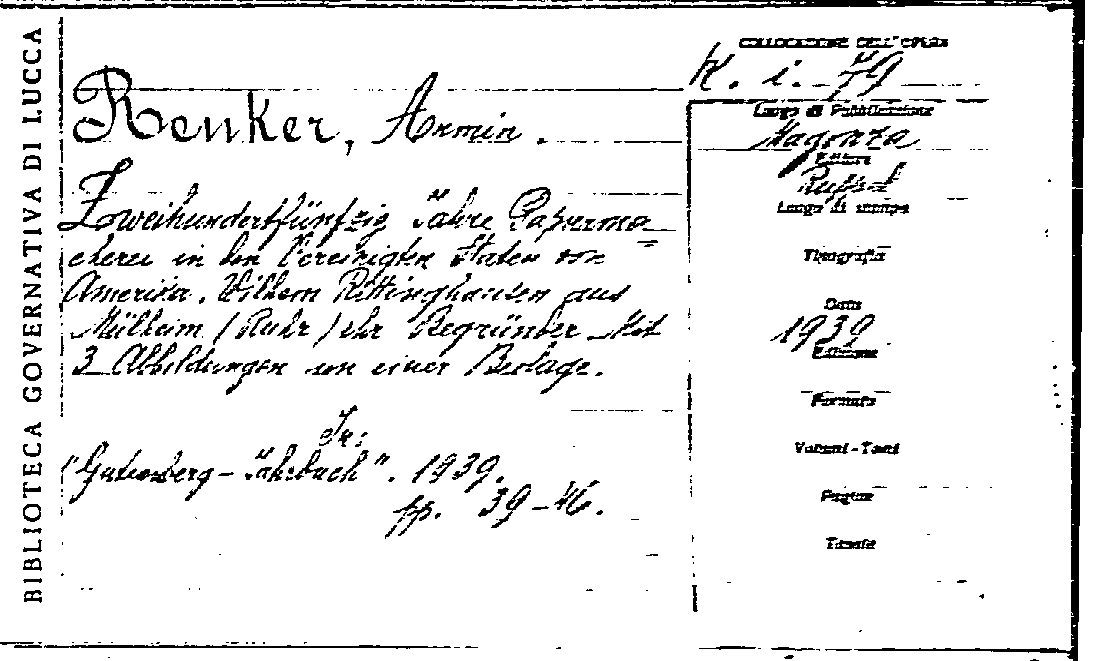 BIBLIOTECA GOVERNATIVA DI LUCCA
Renker, Armin.
Zweihundertfünfzig Jahre Paperma=
cherei in den Vereinigten Staten von
Amerika. Wilhem Rittinghausen aus
Mülheim (Ruhr) ihr Begründer. Mit
3 Abbildungen un einer Beilage.
In:
"Gutenberg-Jahrbuch". 1939.
pp. 39-46.
COLLOCAZIONE DELL'OPERA
K. i. 79
Luogo di Pubblicazione
Magonza
Editore
Luogo di stampa
Tipografia
Data
1939
Edizione
Formato
Volumi - Tomi
Pagine
Tavole